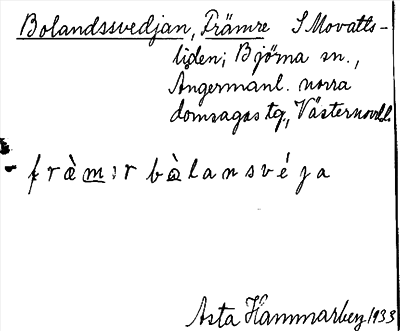 Bolandssvedjan, Främre S Movatts-
liden; Björna sn.,
Ångermanl. norra
domsagas tg., Västernorrl.
fràm:r bòlansvéja
Asta Hammarberg 1933